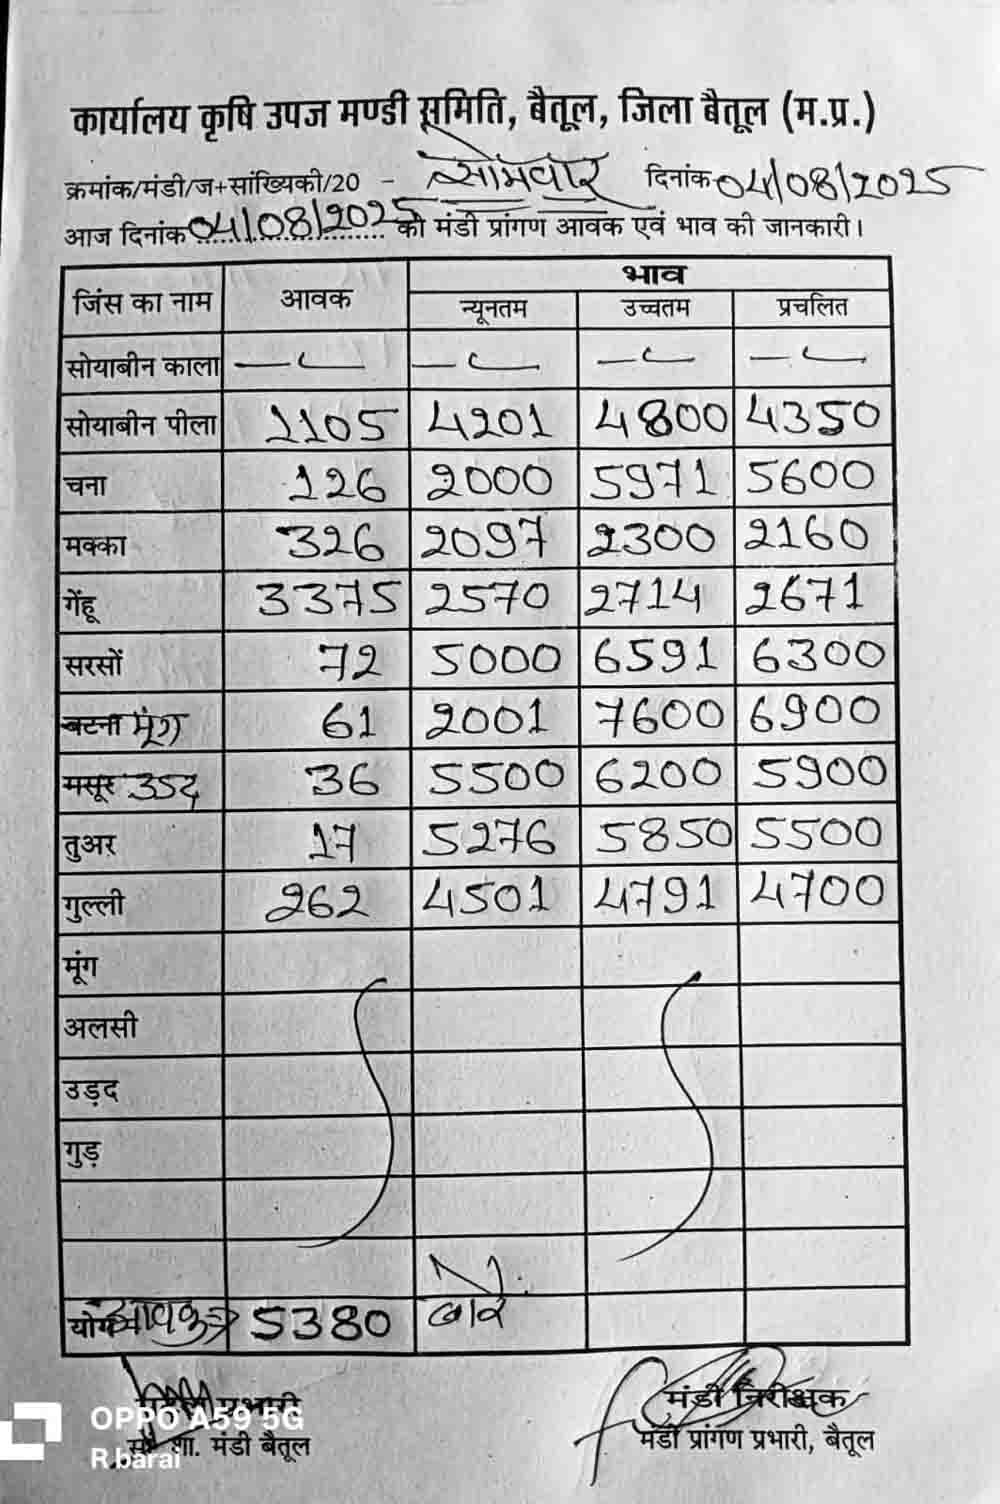 कार्यालय कृषि उपज मण्डी समिति, बैतूल, जिला बैतूल (म.प्र.)
क्रमांक/मंडी/ज+सांख्यिकी/20 - सोमवार दिनांक 04/08/2025
आज दिनांक 04/08/2025 को मंडी प्रांगण आवक एवं भाव की जानकारी।
जिंस का नाम आवक भाव
न्यूनतम उच्चतम प्रचलित
सोयाबीन काला — — — —
सोयाबीन पीला 1105 4201 4800 4350
चना 126 2000 5971 5600
मक्का 326 2097 2300 2160
गेंहू 3375 2570 2714 2671
सरसों 72 5000 6591 6300
बटना मूंग 61 2001 7600 6900
मसूर उडद 36 5500 6200 5900
तुअर 17 5276 5850 5500
गुल्ली 262 4501 4791 4700
मूंग
अलसी
उड़द
गुड़
योग आवक 5380 बोरे
प्रभारी मंडी निरीक्षक
शा. मंडी बैतूल मंडी प्रांगण प्रभारी, बैतूल
OPPO A59 5G
R barai